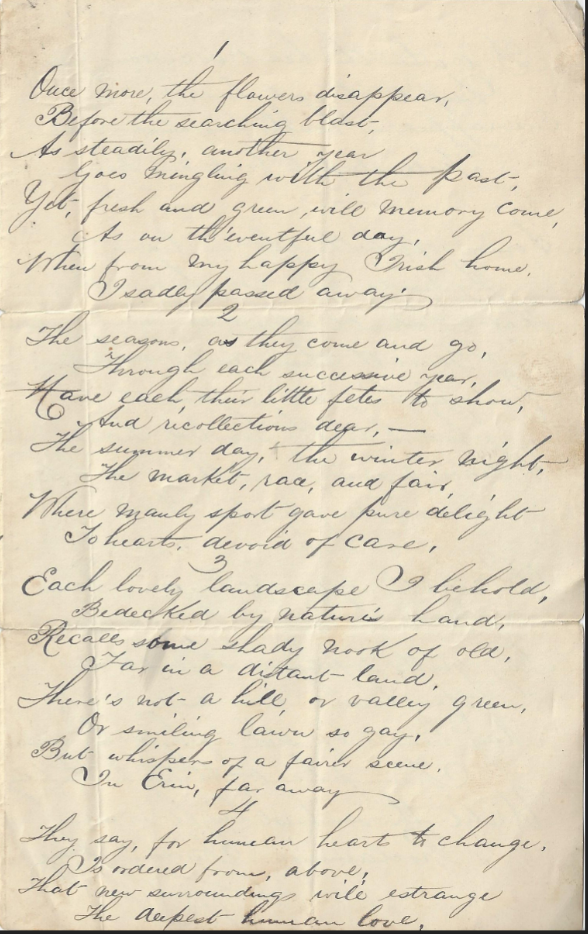 1
Once more, the flowers disappear,
Before the searching blast,
As steadily, another year
Goes mingling with the past,
Yet, fresh and green, will memory come,
As on th'eventful day,
When from my happy Irish home,
I sadly passed away.
2
The seasons, as they come and go,
Through each successive year,
Have each their little fetes to show,
And recollections dear, —
The summer day, + the winter night,
The market, race, and fair,
Where manly sport gave pure delight
To hearts, devoid of care,
3
Each lovely landscape I behold,
Bedecked by nature's hand,
Recalls some shady nook of old,
Far in a distant land,
There's not a hill, or valley green,
Or smiling lawn so gay,
But whispers of a fairer scene,
In Erin, far away
4
They say, for human hearts to change,
Is ordered from, above,
That new surroundings will estrange
The deepest human love,